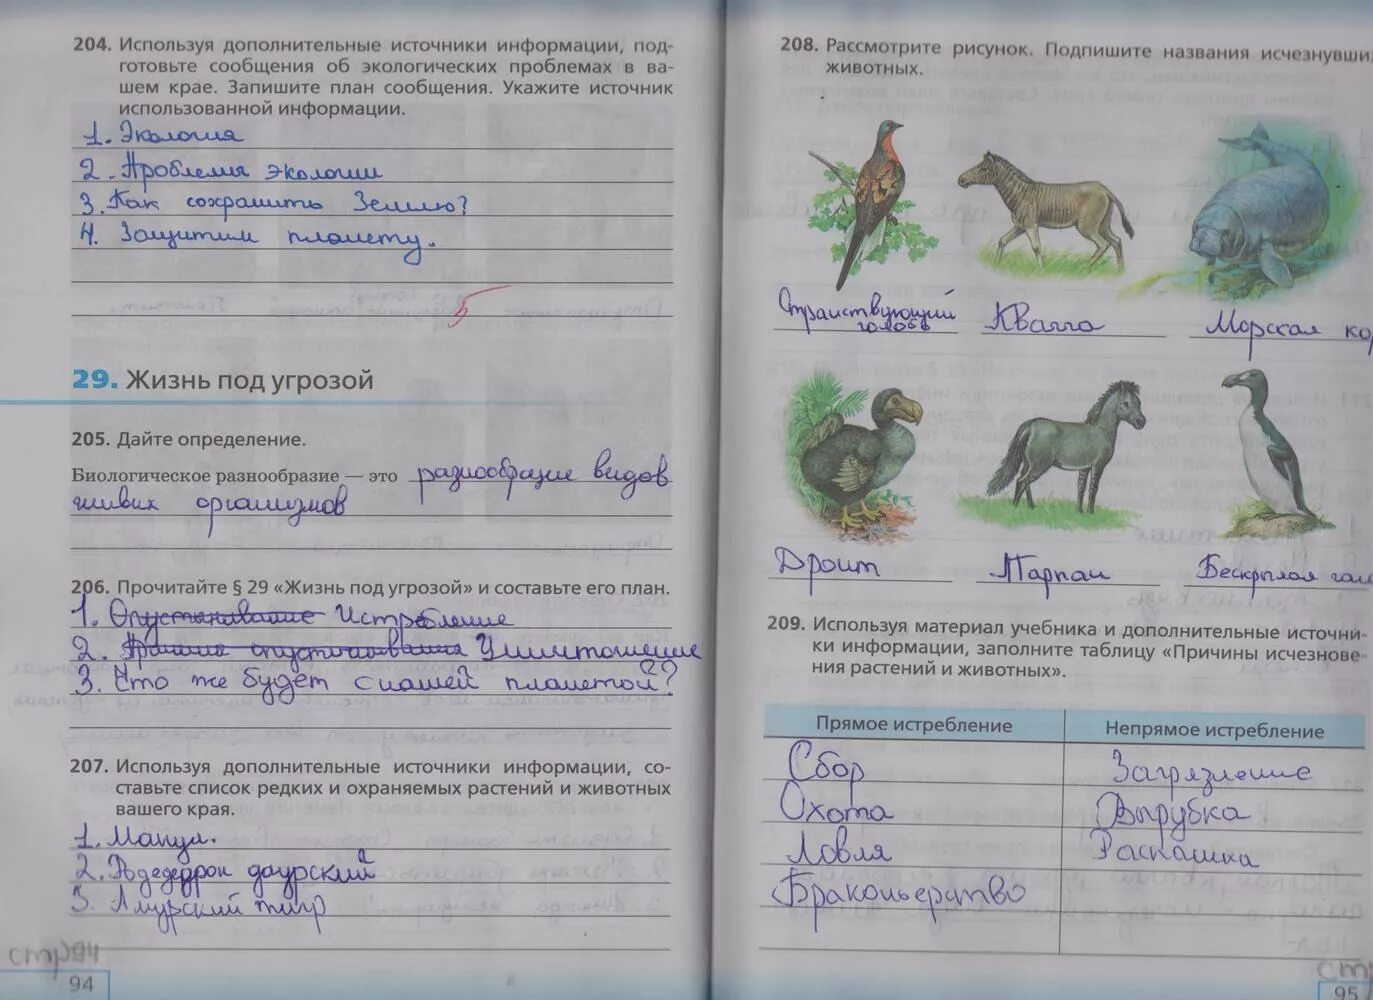 204. Используя дополнительные источники информации, под-
готовьте сообщения об экологических проблемах в ва-
шем крае. Запишите план сообщения. Укажите источник
использованной информации.
1. Экология
2. Проблемы экологии
3. Как сохранить Землю?
4. Защитим планету.
5
29. Жизнь под угрозой
205. Дайте определение.
Биологическое разнообразие — это разнообразие видов
живых организмов
206. Прочитайте § 29 «Жизнь под угрозой» и составьте его план.
1. Опустынивание Истребление
2. опустынивания Уничтожение
3. Что же будет с нашей планетой?
207. Используя дополнительные источники информации, со-
ставьте список редких и охраняемых растений и животных
вашего края.
1. Манул.
2. даурский
3. Амурский тигр
стр94
94
208. Рассмотрите рисунок. Подпишите названия исчезнувших
животных.
Странствующий
голубь
Квагга
Морская ко
Дронт
Тарпан
Бескрылая гага
209. Используя материал учебника и дополнительные источни-
ки информации, заполните таблицу «Причины исчезнове-
ния растений и животных».
Прямое истребление Непрямое истребление
Сбор Загрязнение
Охота Вырубка
Ловля Распашка
Браконьерство
стр
95